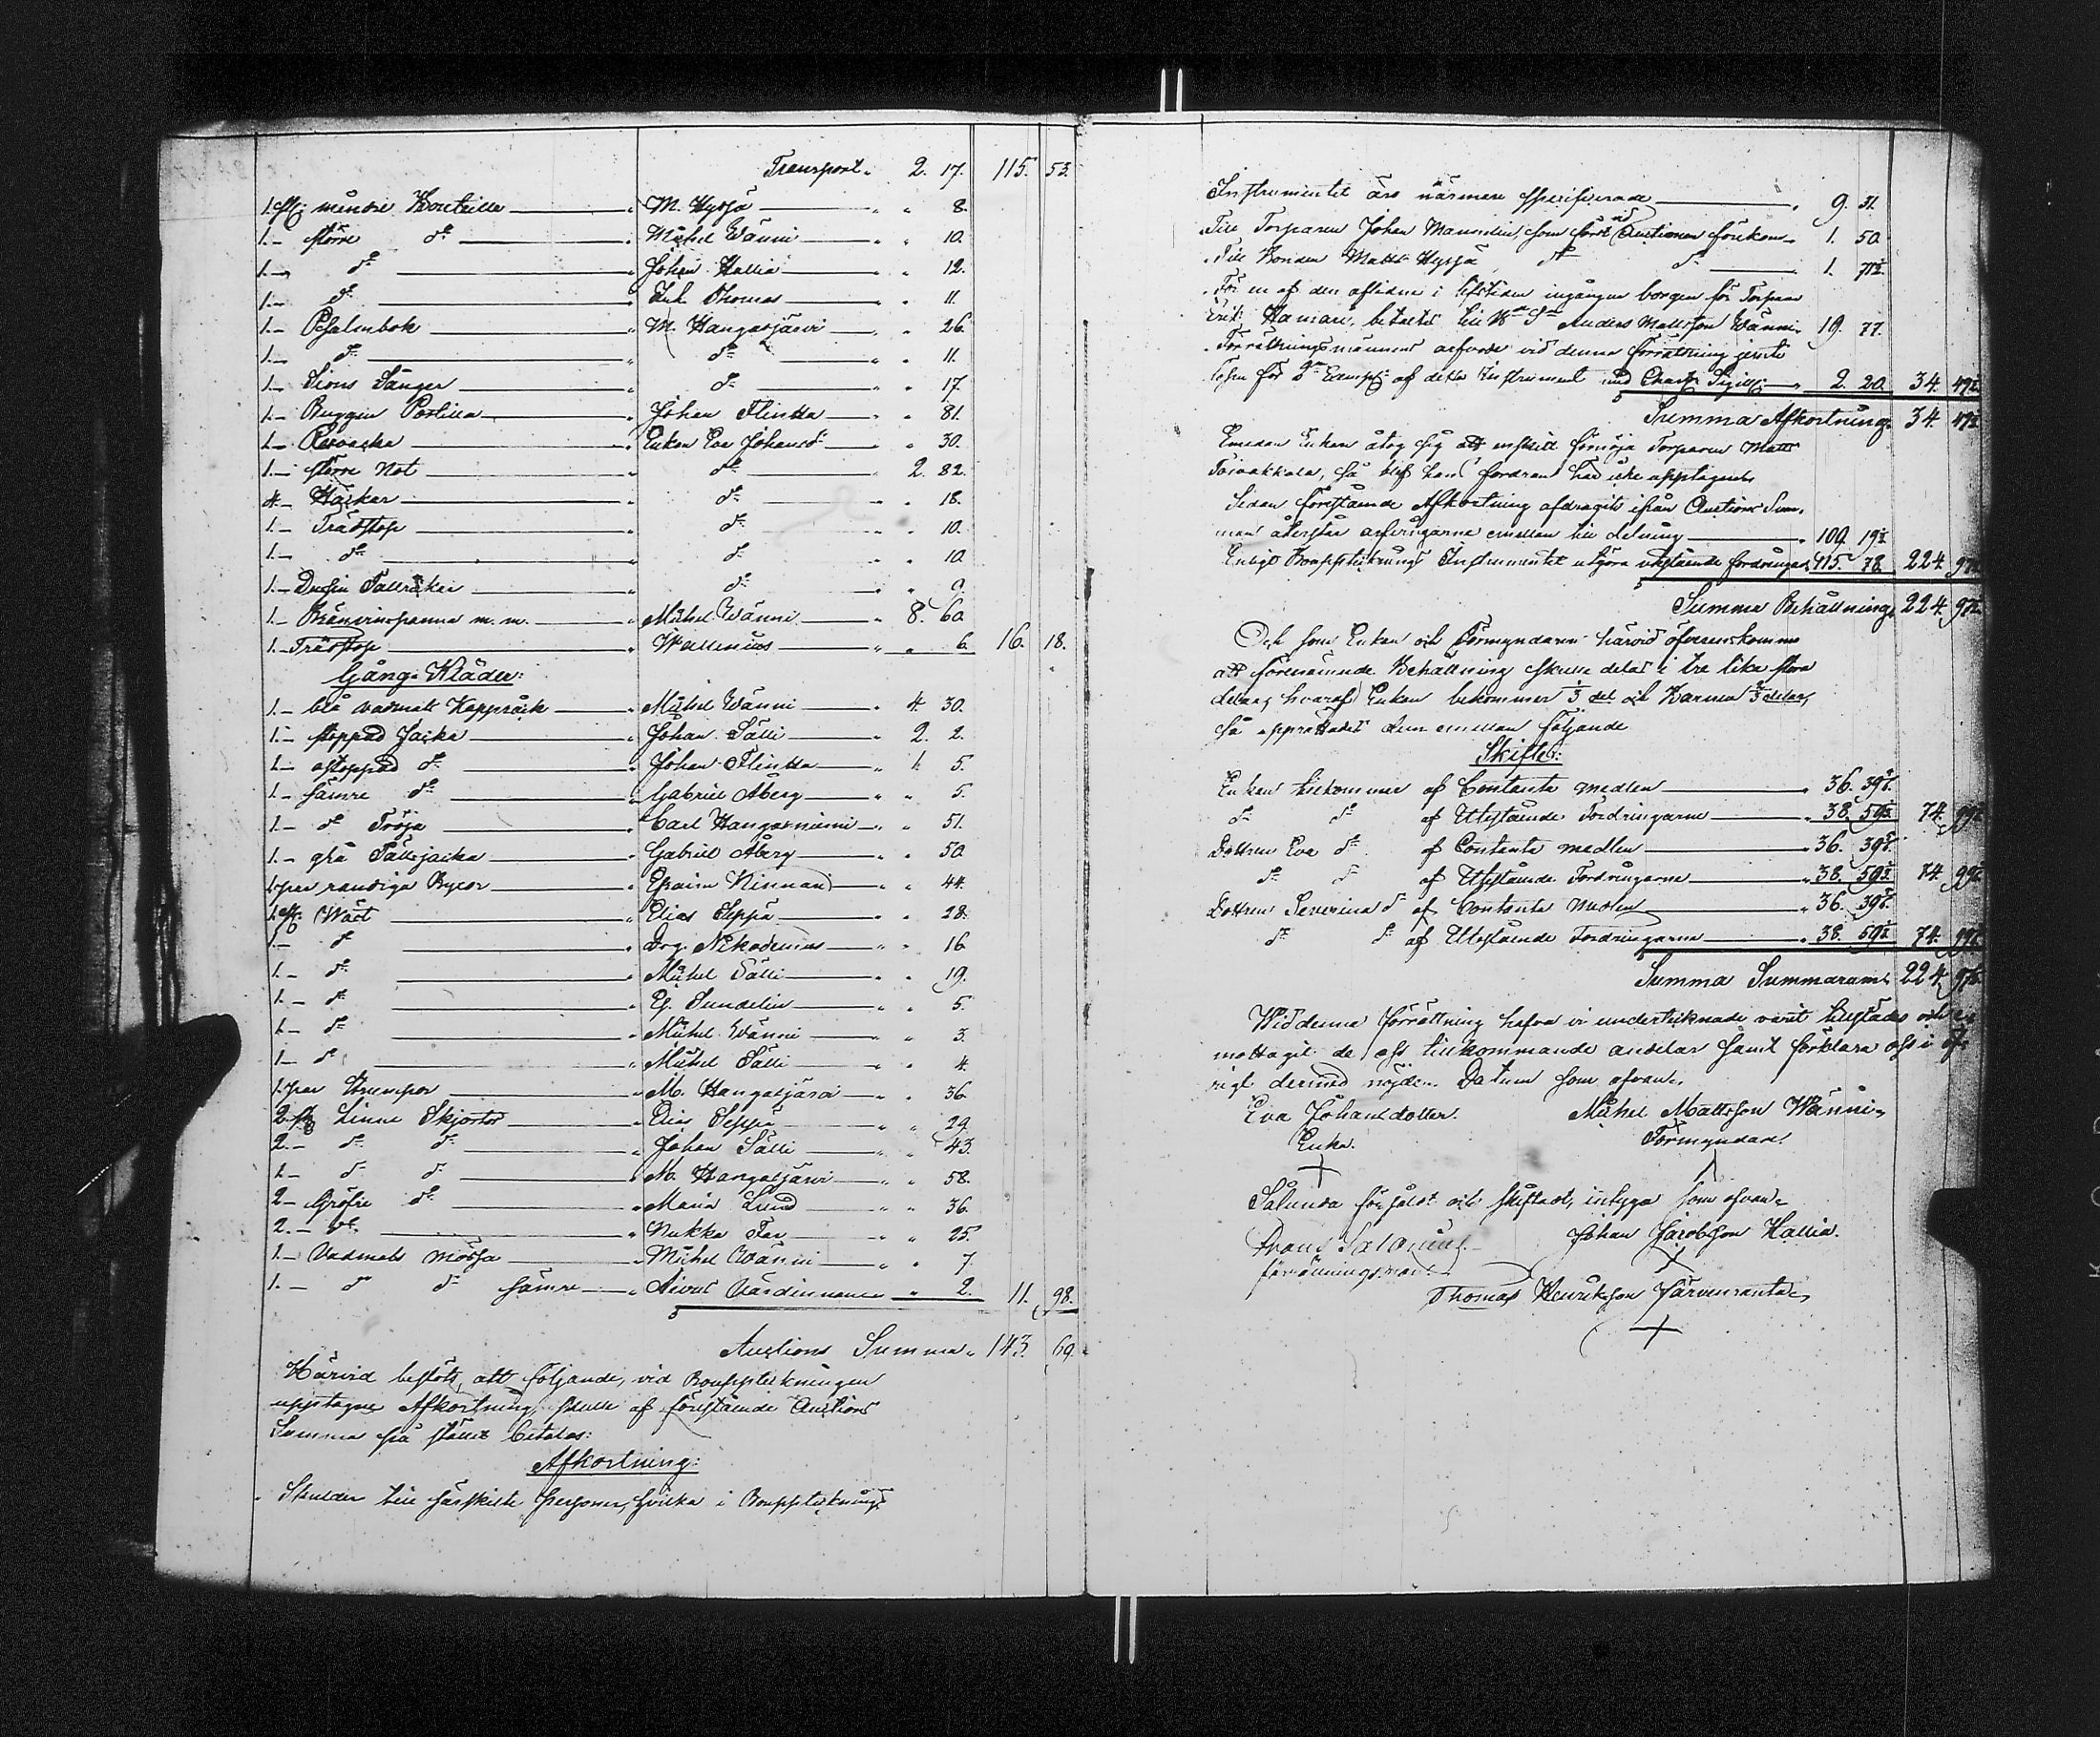 Transport. 2. 17. 115. 53.
1. st: mindre Bouteille M. Hyrjä " 8.
1.- större do Michel Wänni " 10.
1.- do Johan Kallia " 12.
1.- do Enk. Thomas " 11.
1.- Psalmbok M. Hangasjärvi " 26.
1.- do do " 11.
1.- Sions Sånger do " 17.
1.- Postilla Johan Flinkka " 81.
1.- Enkan Eva Johansd: " 30.
1.- större Not do 2. 82.
4.- Häckar do " 18.
1.- Trästop do " 10.
1.- do do " 10.
1.- Dussin Tallrickar do " 9.
1.- Bränvinspanna m. m. Michel Wänni 8. 60.
1.- Trästop Wallenius " 6. 16. 18.
Gång-Kläder:
1.- blå vadmals Kappråck Michel Wänni 4. 30.
1.- stoppad Jacka Johan Sälli 2. 2.
1.- ostoppad do Johan Flinkka 1. 5.
1.- sämre do Gabriel Åberg " 5.
1.- do Tröja Carl Hangasniemi " 51.
1.- grå Gabriel Åberg " 50.
1. par randiga Byxor Efraim Kinnari " 44.
1. st. Wäst Elias Seppä " 28.
1.- do Drg. Nikodemus " 16.
1.- do Michel Sälli " 19.
1.- do G. Sundelin " 5.
1.- do Michel Wänni " 3.
1.- do Michel Sälli " 4.
1. par Strumpor M. Hangasjärvi " 36.
2. st. Linne Skjortor Elias Seppä " 29.
2.- do do Johan Sälli " 43.
1.- do do M. Hangasjärvi " 58.
2.- Gröfre do Maria Lund " 36.
2.- do " 25.
1.- Vadmals mössa Michel Wänni " 7.
1.- do do sämre " 2. 11. 98.
Auctions Summa. 143. 69.
Härvid beslöts, att följande, vid Bouppteckningen
upptagne Afkortning, skulle af förestående Auctions
Summa på stället betalas:
Afkortning:
Skulder till särskilte personer, hvilka i Bouppteknings
Instrumentet äro närmare specificerade 9. 31.
Till Torparen Johan som först vid Auctionen förekom 1. 50.
Till Bonden Matts Hyrjä do do 1. 71½
För en af den aflidne i lifstiden ingången borgen för Torparen
Erik Hamari, betaltes till Anders Mattsson Wänni 19. 77.
Förrättningsmännens arfvode vid denna förrättning jemte
lösen för 2ne Exempl: af detta Instrument med Charta Sigill: 2. 20. 34. 49½
Summa Afkortning 34. 49½
Emedan Enkan åtog sig att enskilt förnöja Torparen Matts
Toivakkala, så blef hans fordran här icke upptagen.
Sedan förestående Afkortning afdragits ifrån Auctions Sum,
man återstår arfvingarne emellan till delning 109. 19½
Enligt Bouppteknings Instrumentet utgöra utestående fordringar 115. 78. 224. 97½
Summa Behållning 224. 97½
Och som Enkan och Förmyndaren härvid öfverenskommo
att förenämnde Behållning skulle delas i tre lika stora
delar, hvaraf Enkan bekommer 1/3 del och Barnen 2/3 delar,
så upprättades dem emellan följande
Skifte:
Enkan tillkommer af Contanta medlen 36. 39
do do af Utestående Fordringarne 38. 59 74. 99
Dottren Eva do af Contanta medlen 36. 39
do do af Utestående Fordringarne 38. 59 74. 99
Dottren Severina do af Contanta medlen 36. 39
do do af Utestående Fordringarne 38. 59 74. 99
Summa Summarum 224. 97½
Wid denna förrättning hafva vi undertecknade varit tillstädes och
mottagit de oss tillkommande andelar samt förklara oss i öf-
rigt dermed nöjde. Datum som ofvan.
Eva Johansdotter. Michel Mattsson Wänni,
Enka. Förmyndare
Sålunda försåldt och skiftadt, intyga som ofvan
Frans Salonius. Johan Jacobsson Kallia.
förrättningsman.
Thomas Henriksson Järvenranta,